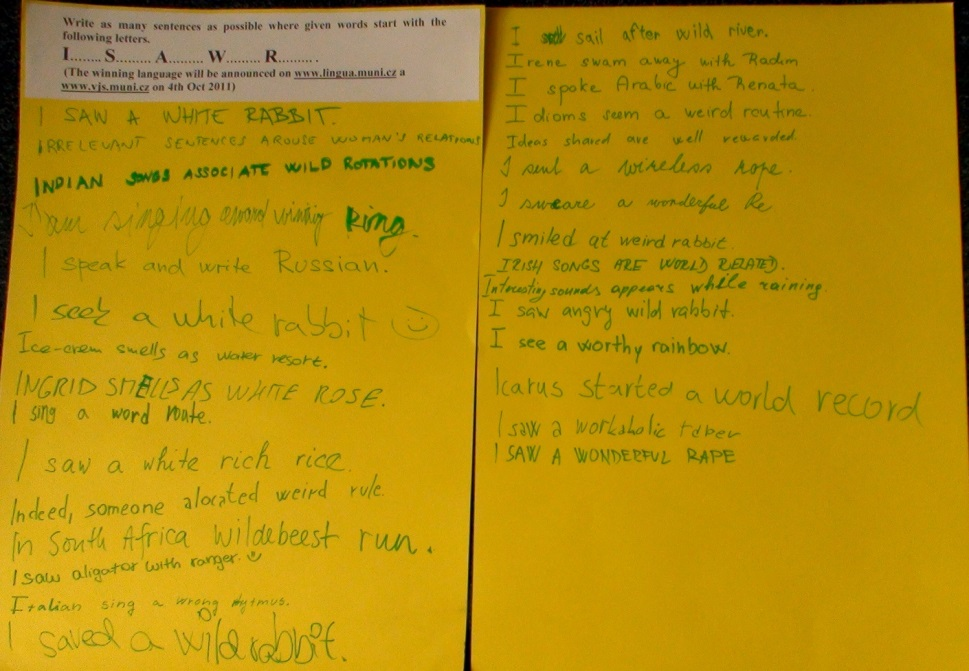 Write as many sentences as possible where given words start with the
following letters.
I........ S......... A......... W........ R.......... .
(The winning language will be announced on www.lingua.muni.cz a
www.vjs.muni.cz on 4th Oct 2011)
I SAW A WHITE RABBIT.
IRRELEVANT SENTENCES AROUSE WOMAN'S RELATIONS
INDIAN SONGS ASSOCIATE WILD ROTATIONS
I am singing award winning Ring.
I speak and write Russian.
I seek a white rabbit ☺
Ice-crem smells as water resort.
INGRID SMELLS AS WHITE ROSE.
I sing a word route.
I saw a white rich rice.
Indeed, someone alocated weird rule.
In South Africa Wildebeest run.
I saw aligator with ranger. ☺
Italian sing a wrong rytmus.
I saved a wild rabbit.
I sail after wild river.
Irene swam away with Radim
I spoke Arabic with Renata.
Idioms seem a weird routine.
Ideas shared are well rewarded.
I sent a wireless rope.
I sweare a wonderful Re
I smiled at weird rabbit.
IRISH SONGS ARE WORLD RELATED.
Interesting sounds appears while raining.
I saw angry wild rabbit.
I see a worthy rainbow.
Icarus started a world record
I saw a workaholic
I SAW A WONDERFUL RAPE